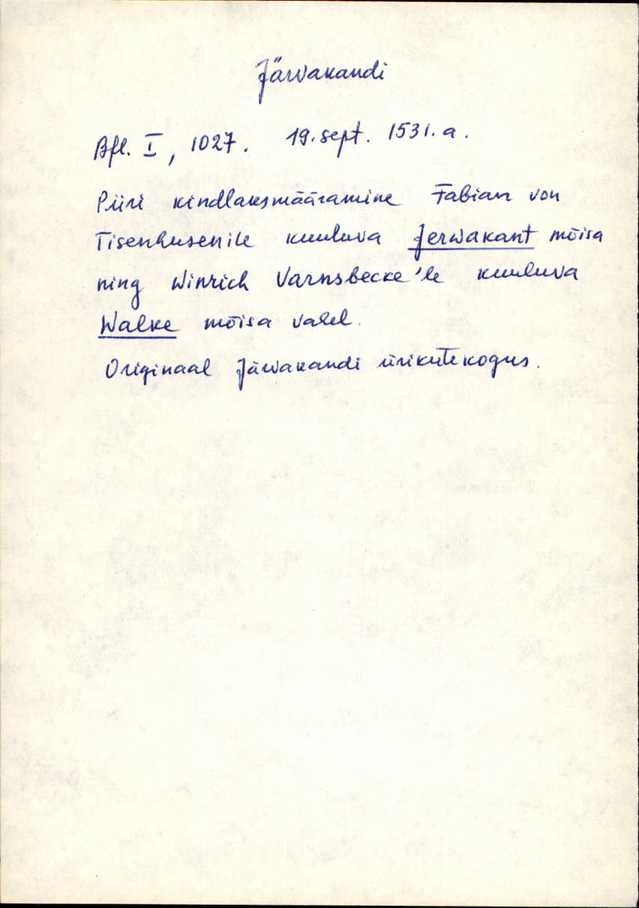 Järvakandi
Bfl. I, 1027. 19. sept. 1531. a.
Piiri kindlaksmääramine Fabian von
Tisenhusenile kuuluva Jerwakant mõisa
ning Winrich Varnsbecke'le kuuluva
Walke mõisa vahel.
Originaal Järvakandi ürikutekogus.